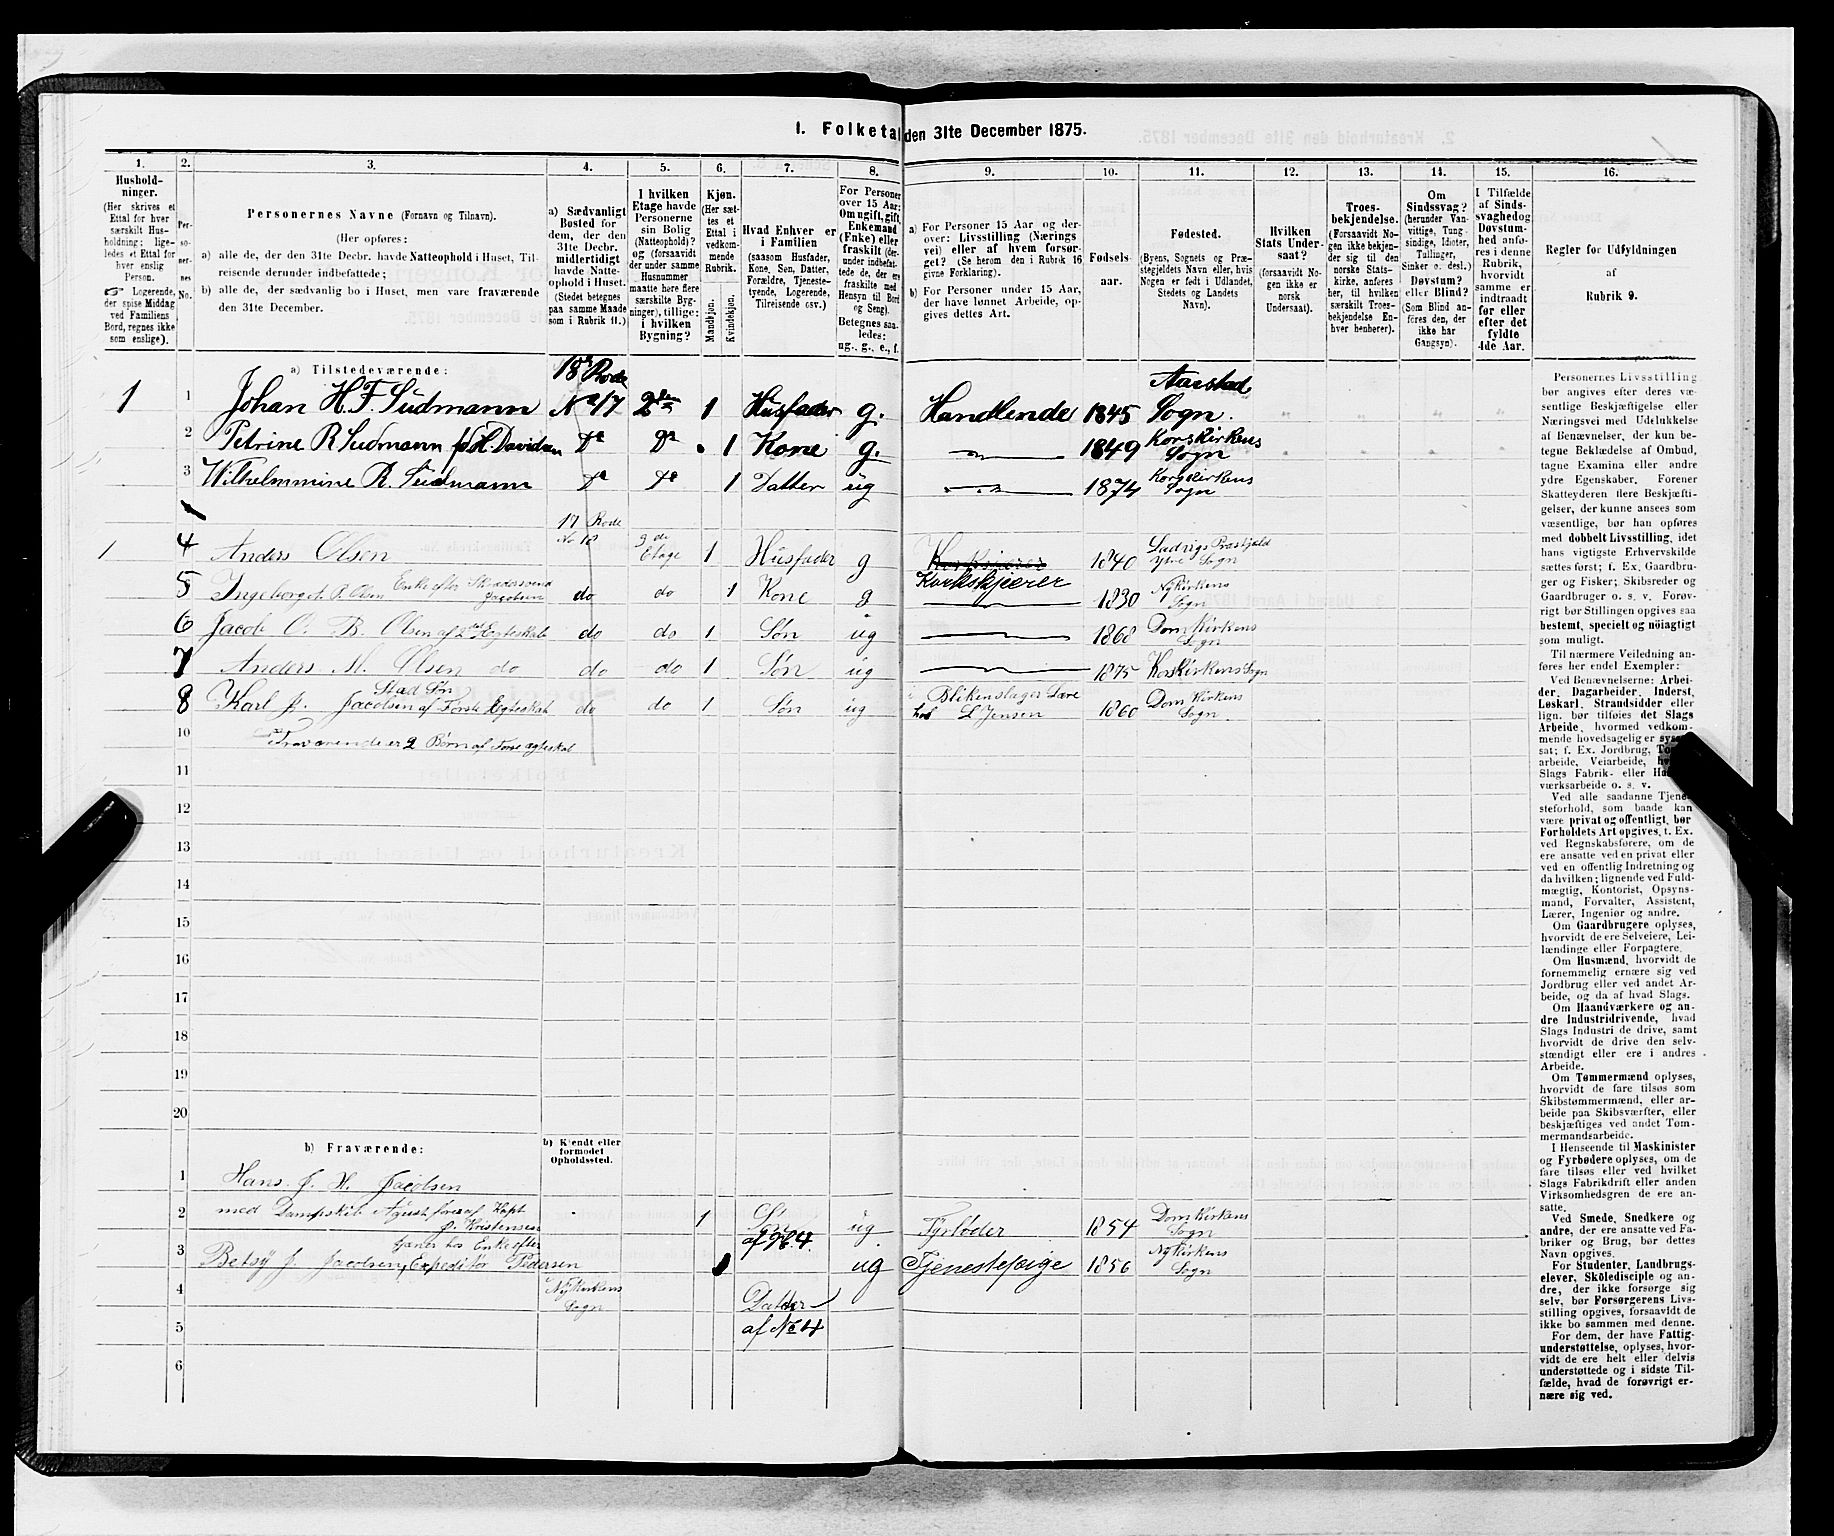 1. Folketal den 31te December 1875.
1. 2. 3. 4. 5. 6. 7. 8. 9. 10. 11. 12. 13. 14. 15. 16.
Hushold-
ninger.
(Her skrives et
Ettal for hver
særskilt Hus-
holdning; lige-
ledes et Ettal for
hver enslig
Person.
☞ Logerende,
der spise Middag
ved Familiens
Bord, regnes ikke
som enslige).
Per-
so-
ner-
nes
No.
Personernes Navne (Fornavn og Tilnavn).
(Her opføres:
a) alle de, der den 31te Decbr. havde Natteophold i Huset, Til-
reisende derunder indbefattede;
b) alle de, der sædvanlig bo i Huset, men vare fraværende
den 31te December.
a) Sædvanligt
Bosted for
dem, der den
31te Decbr.
midlertidigt
havde Natte-
ophold i Huset.
(Stedet betegnes
paa samme Maade
som i Rubrik 11.)
I hvilken
Etage havde
Personerne
sin Bolig
(Natteophold)?
og (forsaavidt
der under samme
Husnummer
maatte høre flere
særskilte Byg-
ninger), tillige:
i hvilken
Bygning?
Kjøn.
(Her sæt-
tes et
Ettal i
vedkom-
mende
Rubrik.
Mandkjøn.
Kvindekjøn.
Hvad Enhver er
i Familien
(saasom Husfader,
Kone, Søn, Datter,
Forældre, Tjeneste-
tyende, Logerende,
Tilreisende osv.)
For Personer
over 15 Aar:
Om ugift, gift,
Enkemand
(Enke) eller
fraskilt (der-
under indbefat-
tede de, der ere
fraskilte med
Hensyn til Bord
og Seng).
Betegnes saa-
ledes:
ug., g., e., f.
a) For Personer 15 Aar og der-
over: Livsstilling (Nærings
vei) eller af hvem forsør-
get? (Se herom den i Rubrik 16
givne Forklaring).
b) For Personer under 15 Aar,
der have lønnet Arbeide, op-
gives dettes Art.
Fødsels-
aar.
Fødested.
(Byens, Sognets og Præ-
stegjeldets Navn eller, hvis
Nogen er født i Udlandet,
Stedets og Landets
Navn).
Hvilken
Stats Under-
saat?
(forsaavidt No-
gen ikke er
norsk
Undersaat).
Troes-
bekjendelse.
(Forsaavidt No-
gen ikke bekjen-
der sig til den
norske Stats-
kirke, anføres
her, til hvilken
særskilt Troes-
bekjendelse En-
hver henhører).
Om
Sindssvag?
(herunder Van-
vittige, Tung-
sindige, Idioter,
Tullinger,
Sinker o. desl.)
Døvstum?
eller Blind?
(Som Blind an-
føres den, der
ikke har
Gangsyn).
I Tilfælde
af Sinds-
svaghed og
Døvstum-
hed anfø-
res i denne
Rubrik,
hvorvidt
samme er
indtraadt
før eller
efter det
fyldte
4de Aar.
Regler for Udfyldningen
af
Rubrik 9.
a) Tilstedeværende:
18 Rode Aarstad
1 1 Johan H. F. Sudmann No 17 2den 1 Husfader g. Handlende 1845 Sogn.
2 Petrine R Sudmann fød. Davidsen Do Do 1 Kone g. 1849 Korskirkens Sogn
3 Wilhelmmine R. Sudmann Do Do 1 Datter ug 1874 Korskirkens Sogn
17 Rode
1 4 Anders Olsen No 18 2de Etage 1 Husfader g Korkskjærer 1840 Ladvigs Præstgjeld Ytre Sogn
5 Ingeborget R. Olsen Enke efter Jacobsen do do 1 Kone g Korkskjierer 1830 Nykirkens Sogn
6 Jacob O. B. Olsen af 2det Egteskab do do 1 Søn ug 1868 DomKirkens Sogn
7 Anders M. Olsen do do do 1 Søn ug 1875 KorsKirkens Sogn
8 Karl J. Jacobsen Stad Søn af Første Egteskab do do 1 Søn ug i Blikenslager Lære hos L Jensen 1860 DomKirkens Sogn
10 Fraværende er 2 Børn af Første Egteskab
11
12
13
14
15
16
17
18
19
20
b) Fraværende:
b) Kjendt eller
formodet
Opholdssted.
1 Hans J. H. Jacobsen
2 med Dampskib August føres af Kapt Kristensen 1 Søn af No 4. ug Fyrbøder 1854 DomKirkens Sogn
tjaner hos Enke efter
3 Betsy J. Jacobsen, Expeditør Pedersen 1 ug Tjenestepige 1856 Nykirkens Sogn
4 Nykirkens Sogn Datter
5 af No 4
6
Personernes Livsstilling
bør angives efter deres væ-
sentlige Beskjæftigelse eller
Næringsvei med Udelukkelse
af Benævnelser, der kun be-
tegne Beklædelse af Ombud,
tagne Examina eller andre
ydre Egenskaber. Forener
Skatteyderen flere Beskjæfti-
gelser, der kunne ansees som
væsentlige, bør han opføres
med dobbelt Livsstilling, idet
hans vigtigste Erhvervskilde
sættes først; f. Ex. Gaardbru-
ger og Fisker; Skibsreder og
Gaardbruger o. s. v. Forøv-
rigt bør Stillingen opgives saa
bestemt, specielt og nöiagtigt
som muligt.
Til nærmere Veiledning an-
føres her endel Exempler:
Ved Benævnelserne: Arbei-
der, Dagarbeider, Inderst,
Løskarl, Strandsidder eller
lign. bør tilføies det Slags
Arbeide, hvormed vedkom-
mende hovedsagelig er syssel-
sat; f. Ex. Jordbrug,
arbeide, Veiarbeide,
Slags Fabrik- eller
værksarbeide o. s. v.
Ved alle saadanne Tjene-
steforhold, som baade kan
være privat og offentligt, bør
Forholdets Art opgives, t. Ex.
ved Regnskabsførere, om de
ere ansatte ved en privat eller
ved en offentlig Indretning og
da hvilken; lignende ved Fuld-
mægtig, Kontorist, Opsyns-
mand, Forvalter, Assistent,
Lærer, Ingeniør og andre.
Om Gaardbrugere oplyses,
hvorvidt de ere Selveiere, Lei-
lændinge eller Forpagtere.
Om Husmænd, hvorvidt de
fornemmelig ernære sig ved
Jordbrug eller ved andet Ar-
beide, og da af hvad Slags.
Om Haandværkere og an-
dre Industridrivende, hvad
Slags Industri de drive, samt
hvorvidt de drive den selv-
stændigt eller ere i andres
Arbeide.
Om Tømmermænd oplyses,
hvorvidt de fare tilsøs som
Skibstømmermænd, eller ar-
beide paa Skibsværfter, eller
beskjæftiges ved andet Tøm-
mermandsarbeide.
I Henseende til Maskinister
og Fyrbødere oplyses, om de
fare tilsøs eller ved hvilket
Slags Fabrikdrift eller anden
Virksomhedsgren de ere an-
satte.
Ved Smede, Snedkere og
andre, der ere ansatte ved Fa-
briker og Brug, bør dettes
Navn opgives.
For Studenter, Landbrugs-
elever, Skoledisciple og an-
dre, der ikke forsørge sig
selv, bør Forsørgerens Livs-
stilling opgives, forsaavidt de
ikke bo sammen med denne.
For dem, der have Fattig-
understøttelse, oplyses, hvor-
vidt de ere helt eller delvis
understøttede og i sidste Til-
fælde, hvad de forøvrigt er-
nære sig ved.